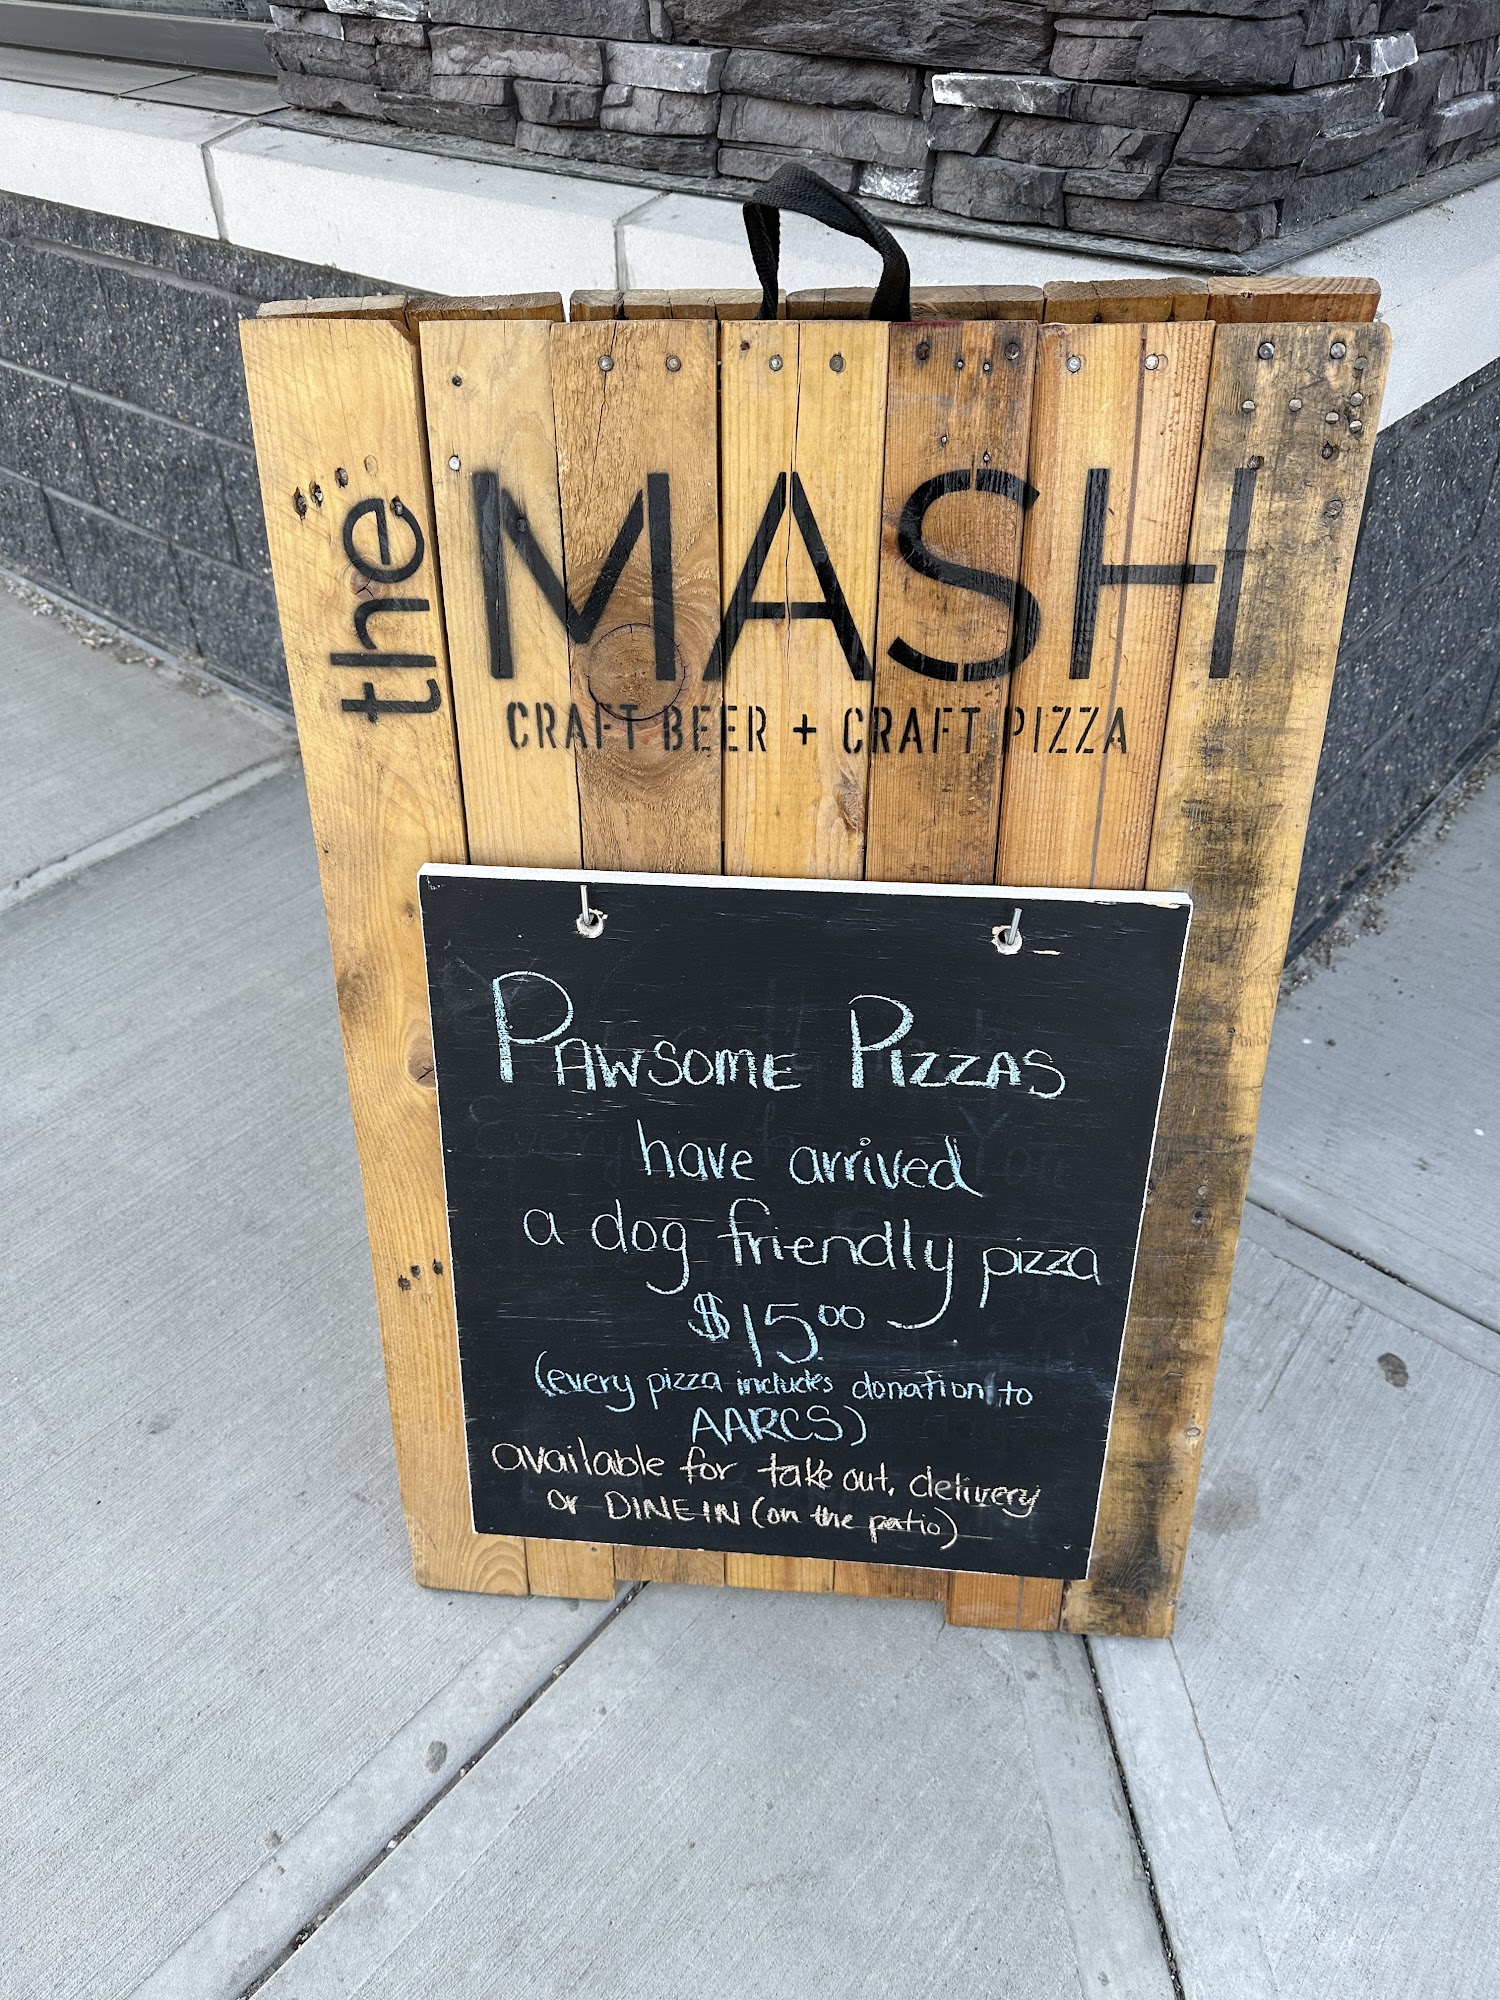 the MASH
CRAFT BEER + CRAFT PIZZA
PAWSOME PIZZAS
have arrived
a dog friendly pizza
$15.00
(every pizza includes donation to
AARCS)
available for take out, delivery
or DINE IN (on the patio)